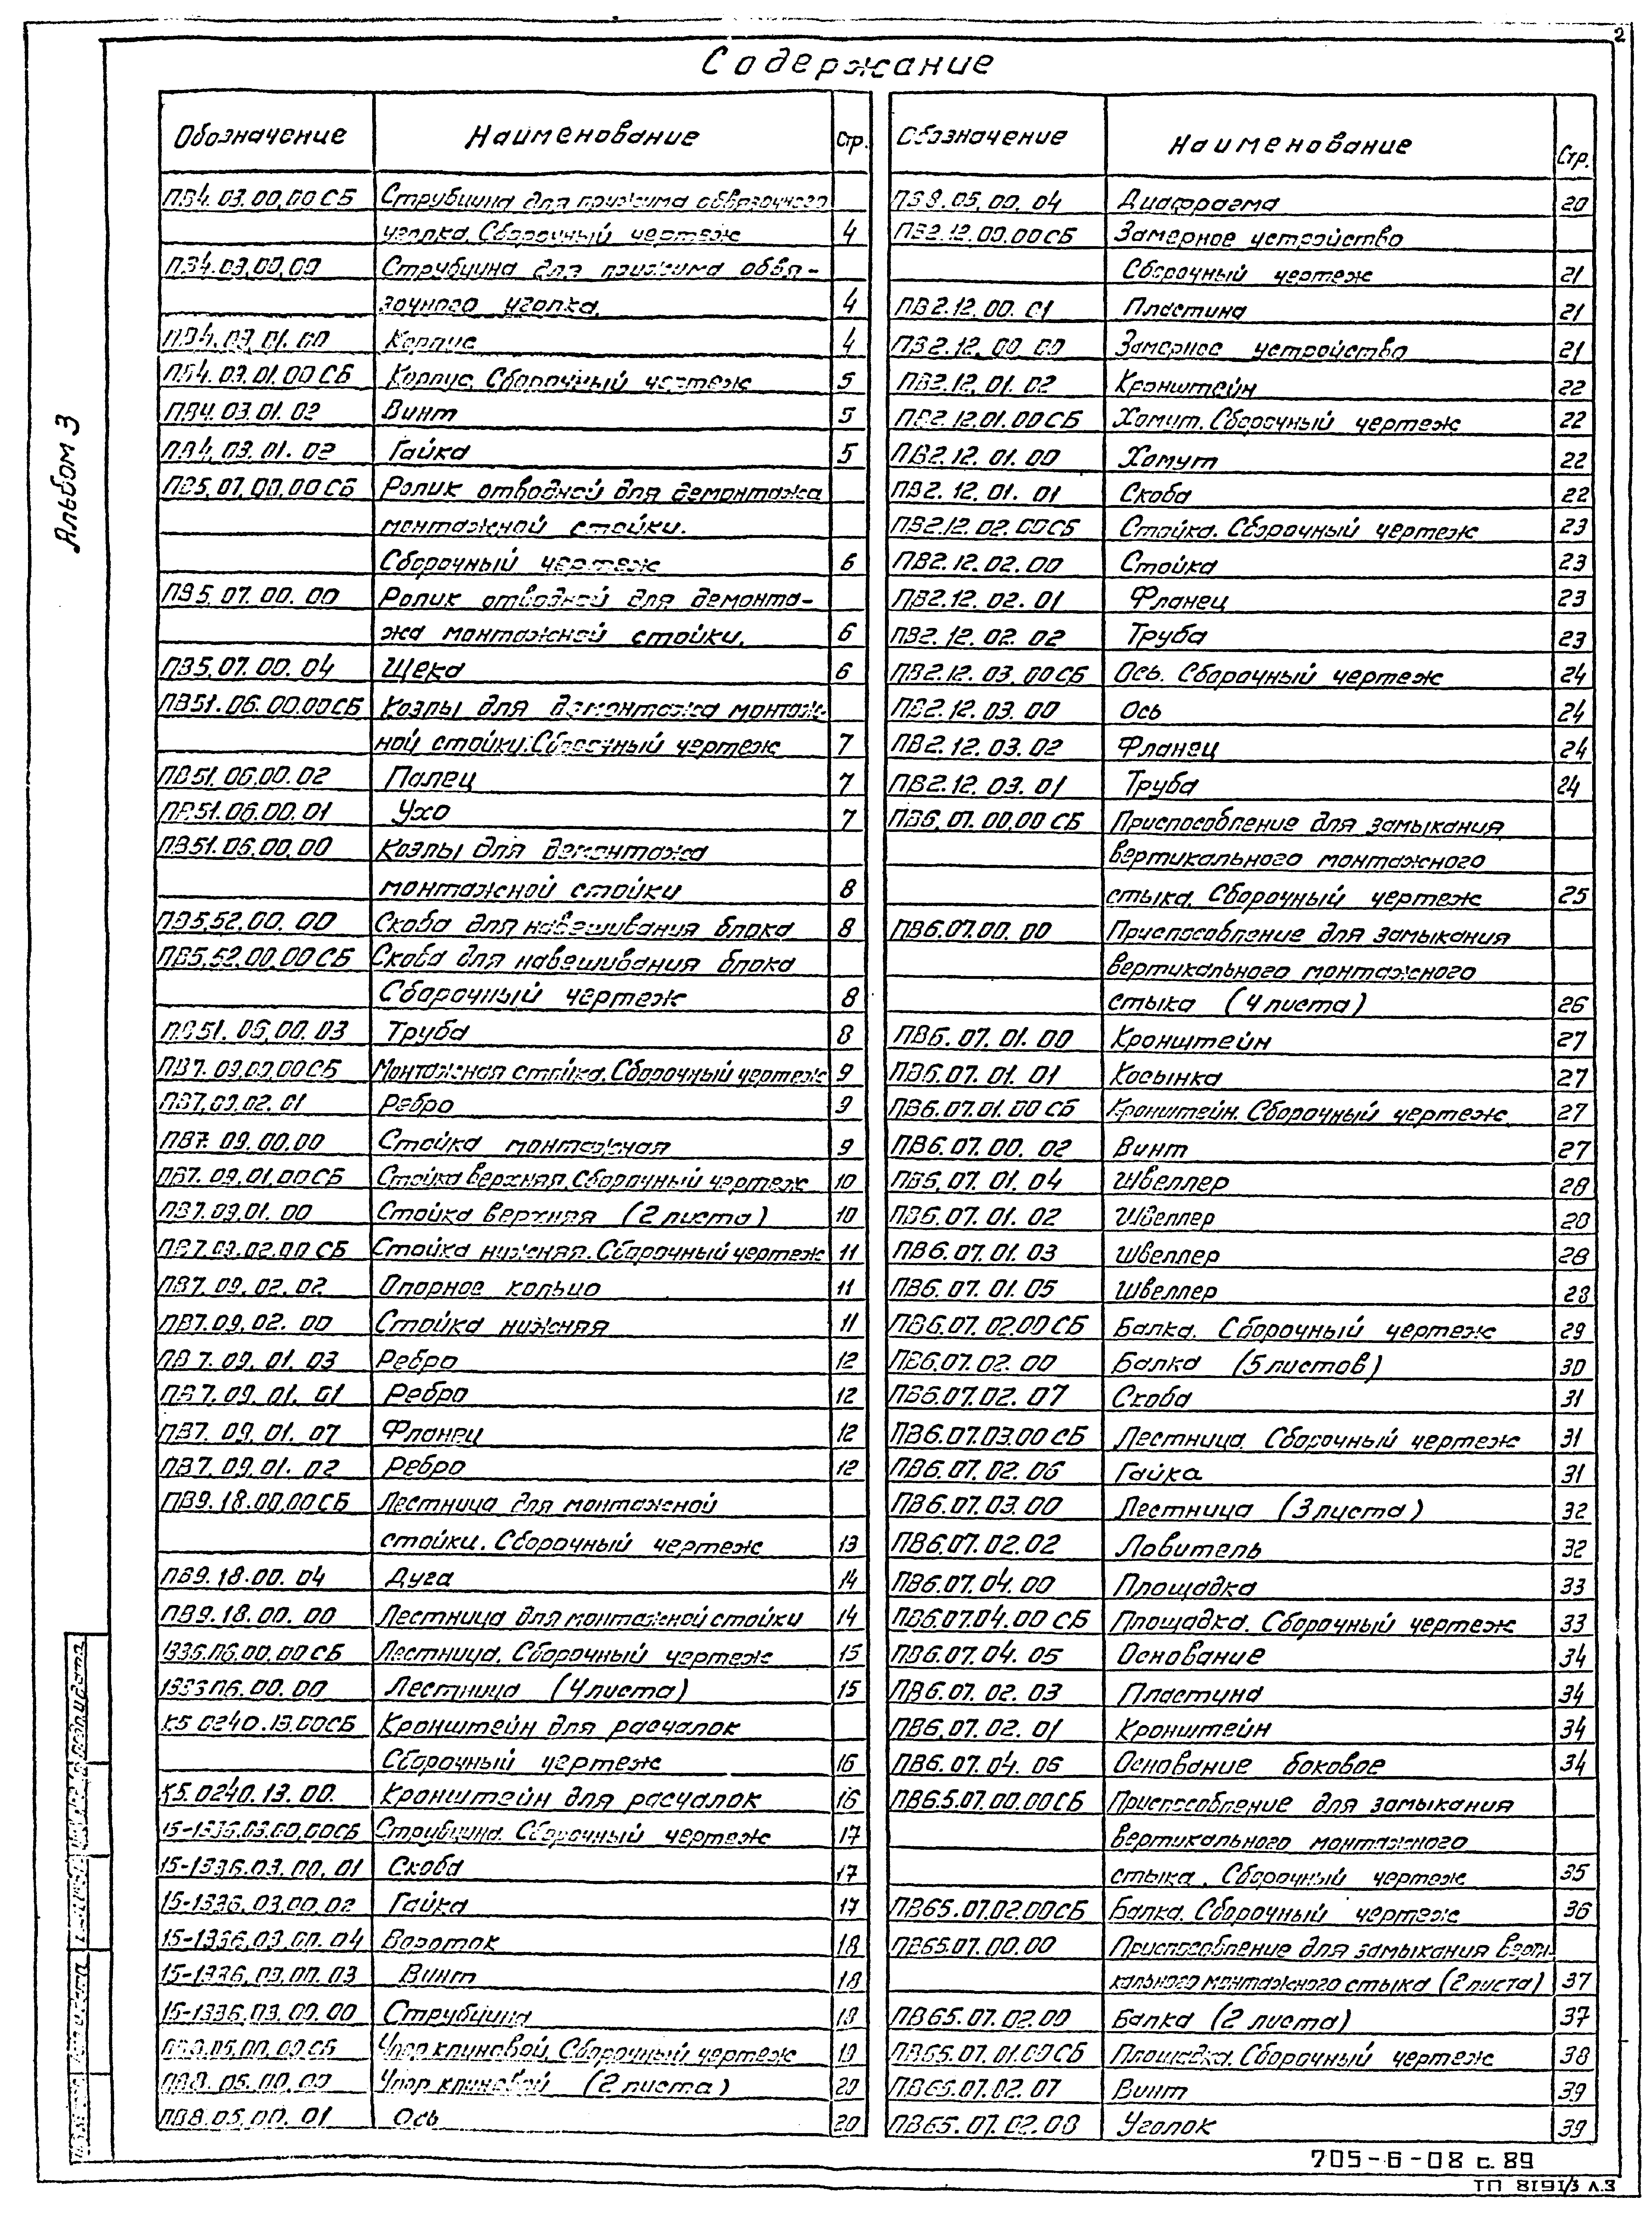 2
Содержание
Альбом 3
Обозначение Наименование Стр.
ПВ4.03.00.00СБ Струбцина для прижима обвязочного
уголка. Сборочный чертеж 4
ПВ4.03.00.00 Струбцина для прижима обвя-
зочного уголка. 4
ПВ4.03.01.00 Корпус 4
ПВ4.03.01.00СБ Корпус. Сборочный чертеж 5
ПВ4.03.01.02 Винт 5
ПВ4.03.01.02 Гайка 5
ПВ5.07.00.00СБ Ролик отводной для демонтажа
монтажной стойки.
Сборочный чертеж 6
ПВ5.07.00.00 Ролик отводной для демонта-
жа монтажной стойки. 6
ПВ5.07.00.04 Щека 6
ПВ51.06.00.00СБ Козлы для демонтажа монтаж-
ной стойки. Сборочный чертеж 7
ПВ51.06.00.02 Палец 7
ПВ51.06.00.01 Ухо 7
ПВ51.06.00.00 Козлы для демонтажа
монтажной стойки 8
ПВ5.52.00.00 Скоба для навешивания блока 8
ПВ5.52.00.00СБ Скоба для навешивания блока
Сборочный чертеж 8
ПВ51.06.00.03 Труба 8
ПВ7.09.00.00СБ Монтажная стойка. Сборочный чертеж 9
ПВ7.09.02.01 Ребро 9
ПВ7.09.00.00 Стойка монтажная 9
ПВ7.09.01.00СБ Стойка верхняя. Сборочный чертеж 10
ПВ7.09.01.00 Стойка верхняя (2 листа) 10
ПВ7.09.02.00СБ Стойка нижняя. Сборочный чертеж 11
ПВ7.09.02.02 Опорное кольцо 11
ПВ7.09.02.00 Стойка нижняя 11
ПВ7.09.01.03 Ребро 12
ПВ7.09.01.01 Ребро 12
ПВ7.09.01.07 Фланец 12
ПВ7.09.01.02 Ребро 12
ПВ9.18.00.00СБ Лестница для монтажной
стойки. Сборочный чертеж 13
ПВ9.18.00.04 Дуга 14
ПВ9.18.00.00 Лестница для монтажной стойки 14
1336.П6.00.00СБ Лестница. Сборочный чертеж 15
1336П6.00.00 Лестница (4 листа) 15
К5.0240.13.00СБ Кронштейн для расчалок
Сборочный чертеж 16
К5.0240.13.00. Кронштейн для расчалок 16
15-1336.03.00.00СБ Струбцина. Сборочный чертеж 17
15-1336.03.00.01 Скоба 17
15-1336.03.00.02 Гайка 17
15-1336.03.00.04 Вороток 18
15-1336.03.00.03 Винт 18
15-1336.03.00.00 Струбцина 18
ПВ8.05.00.00СБ Упор клиновой. Сборочный чертеж 19
ПВ8.05.00.00 Упор клиновой (2 листа) 20
ПВ8.05.00.01 Ось 20
Обозначение Наименование Стр.
ПВ8.05.00.04 Диафрагма 20
ПВ2.12.00.00СБ Замерное устройство
Сборочный чертеж 21
ПВ2.12.00.01 Пластина 21
ПВ2.12.00.00 Замерное устройство 21
ПВ2.12.01.02 Кронштейн 22
ПВ2.12.01.00СБ Хомут. Сборочный чертеж 22
ПВ2.12.01.00 Хомут 22
ПВ2.12.01.01 Скоба 22
ПВ2.12.02.00СБ Стойка. Сборочный чертеж 23
ПВ2.12.02.00 Стойка 23
ПВ2.12.02.01 Фланец 23
ПВ2.12.02.02 Труба 23
ПВ2.12.03.00СБ Ось. Сборочный чертеж 24
ПВ2.12.03.00 Ось 24
ПВ2.12.03.02 Фланец 24
ПВ2.12.03.01 Труба 24
ПВ6.07.00.00СБ Приспособление для замыкания
вертикального монтажного
стыка. Сборочный чертеж 25
ПВ6.07.00.00 Приспособление для замыкания
вертикального монтажного
стыка (4 листа) 26
ПВ6.07.01.00 Кронштейн 27
ПВ6.07.01.01 Косынка 27
ПВ6.07.01.00СБ Кронштейн. Сборочный чертеж 27
ПВ6.07.00.02 Винт 27
ПВ6.07.01.04 Швеллер 28
ПВ6.07.01.02 Швеллер 28
ПВ6.07.01.03 Швеллер 28
ПВ6.07.01.05 Швеллер 28
ПВ6.07.02.00СБ Балка. Сборочный чертеж 29
ПВ6.07.02.00 Балка (5 листов) 30
ПВ6.07.02.07 Скоба 31
ПВ6.07.03.00СБ Лестница Сборочный чертеж 31
ПВ6.07.02.06 Гайка 31
ПВ6.07.03.00 Лестница (3 листа) 32
ПВ6.07.02.02 Ловитель 32
ПВ6.07.04.00 Площадка 33
ПВ6.07.04.00СБ Площадка. Сборочный чертеж 33
ПВ6.07.04.05 Основание 34
ПВ6.07.02.03 Пластина 34
ПВ6.07.02.01 Кронштейн 34
ПВ6.07.04.06 Основание боковое 34
ПВ65.07.00.00СБ Приспособление для замыкания
вертикального монтажного
стыка. Сборочный чертеж 35
ПВ65.07.02.00СБ Балка. Сборочный чертеж 36
ПВ65.07.00.00 Приспособление для замыкания верти-
кального монтажного стыка (2 листа) 37
ПВ65.07.02.00 Балка (2 листа) 37
ПВ65.07.01.00СБ Площадка. Сборочный чертеж 38
ПВ65.07.02.07 Винт 39
ПВ65.07.02.08 Уголок 39
705-6-08 с. 89
ТП 8191/3 Л.3